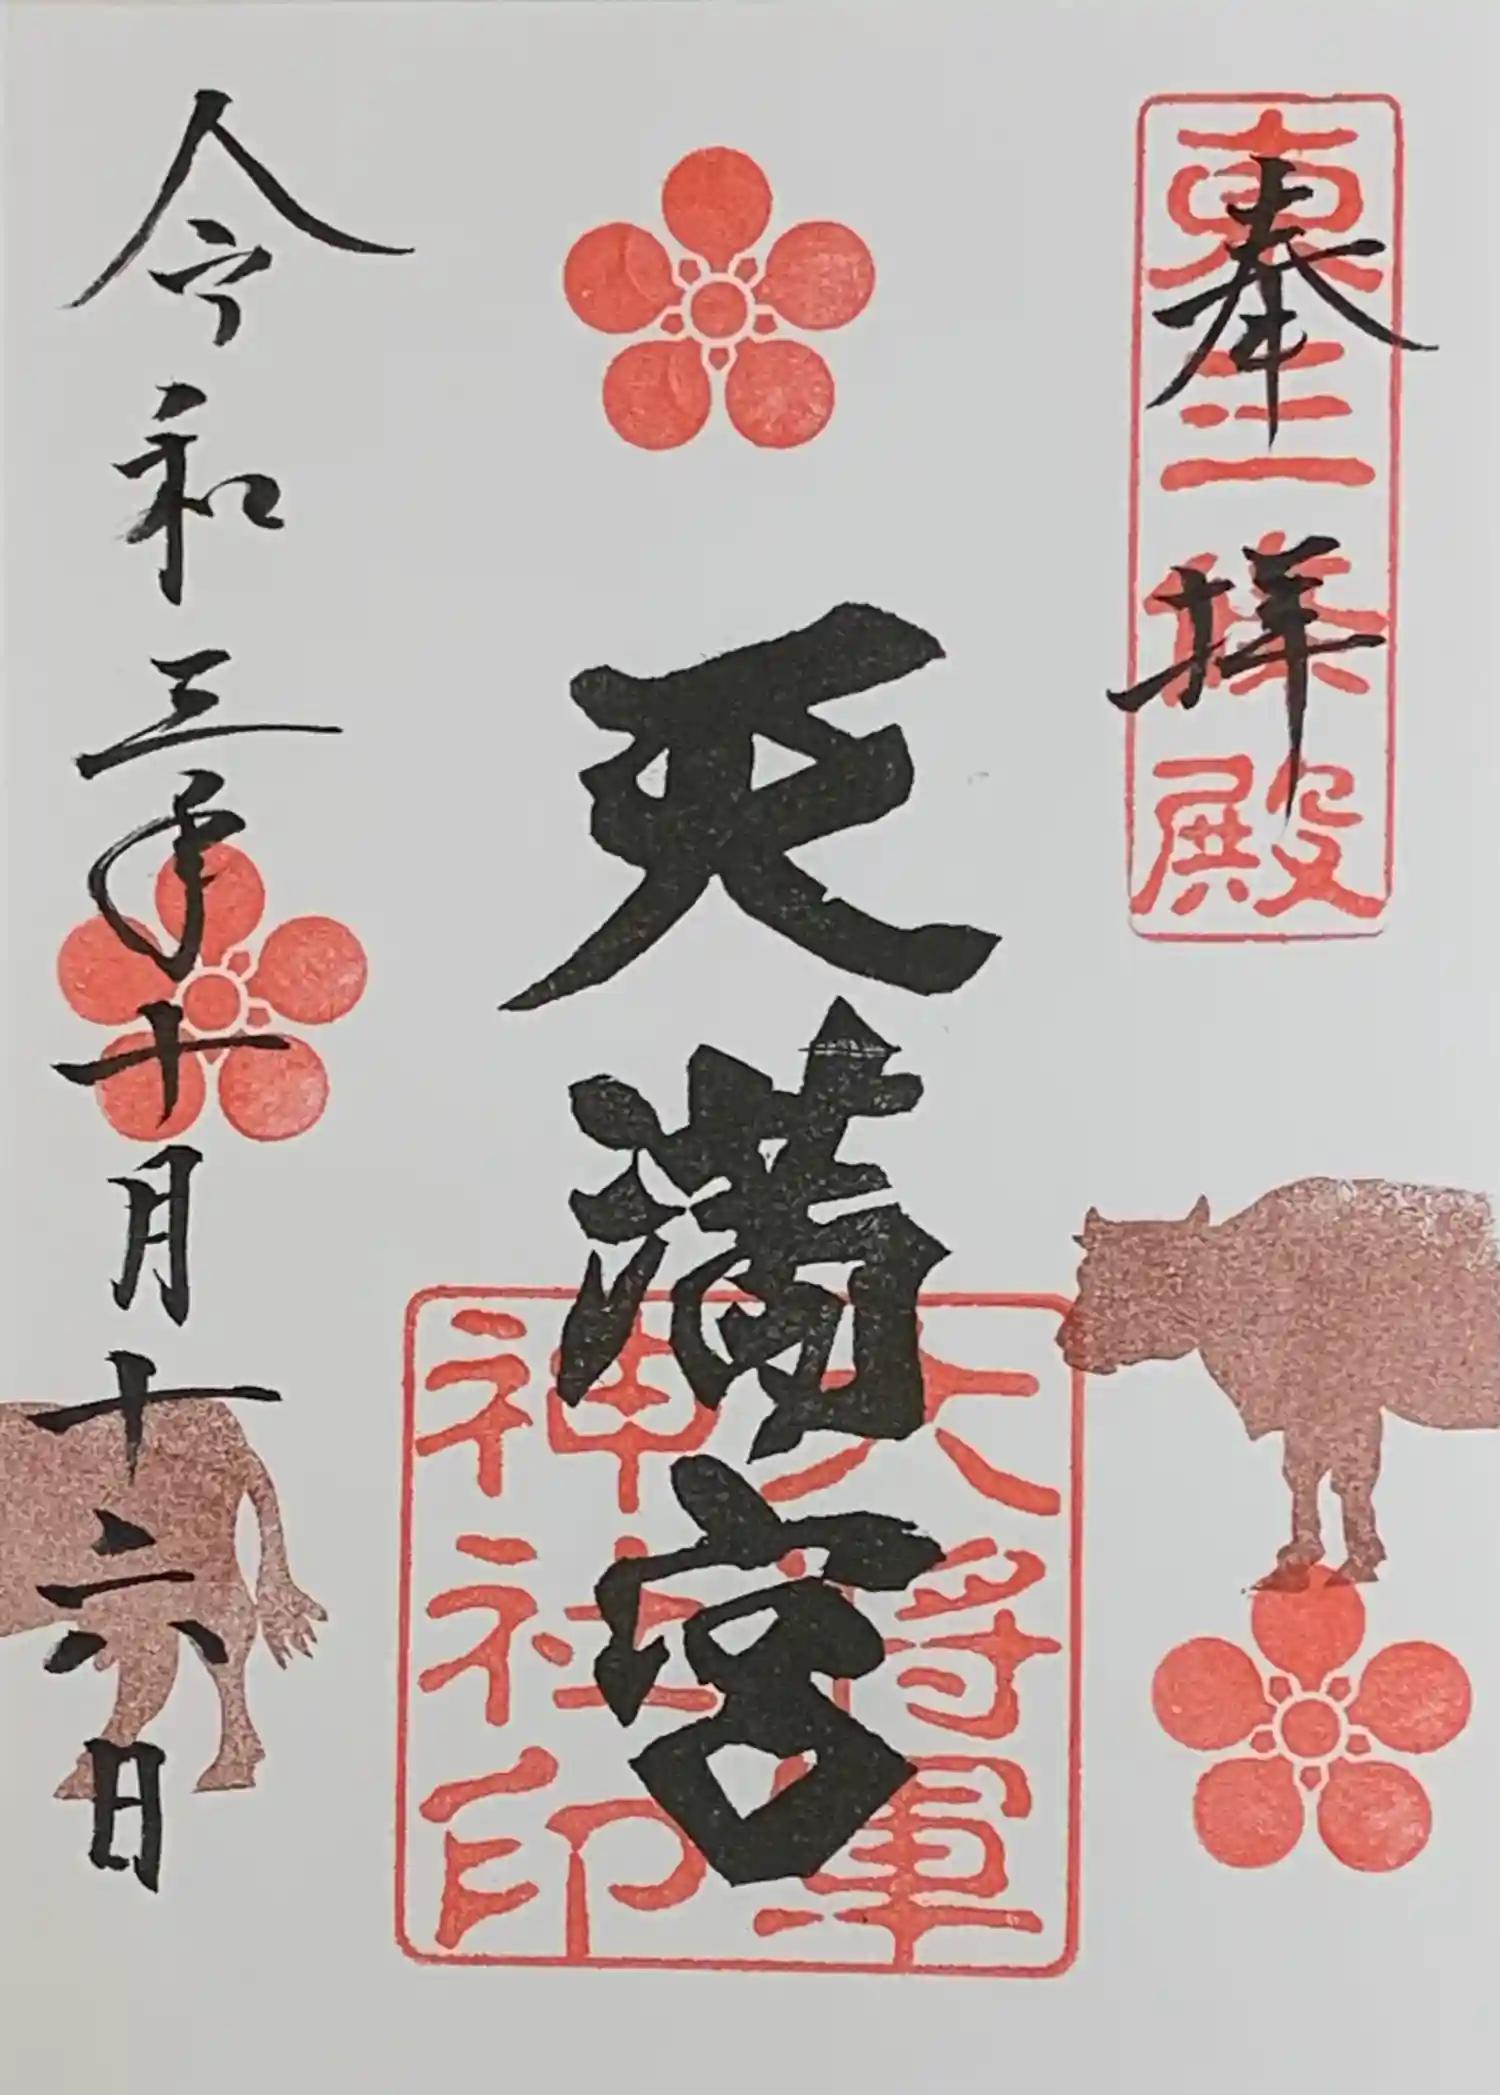 奉拝
東三條殿
天満宮
大将軍
神社印
令和三年十月十六日